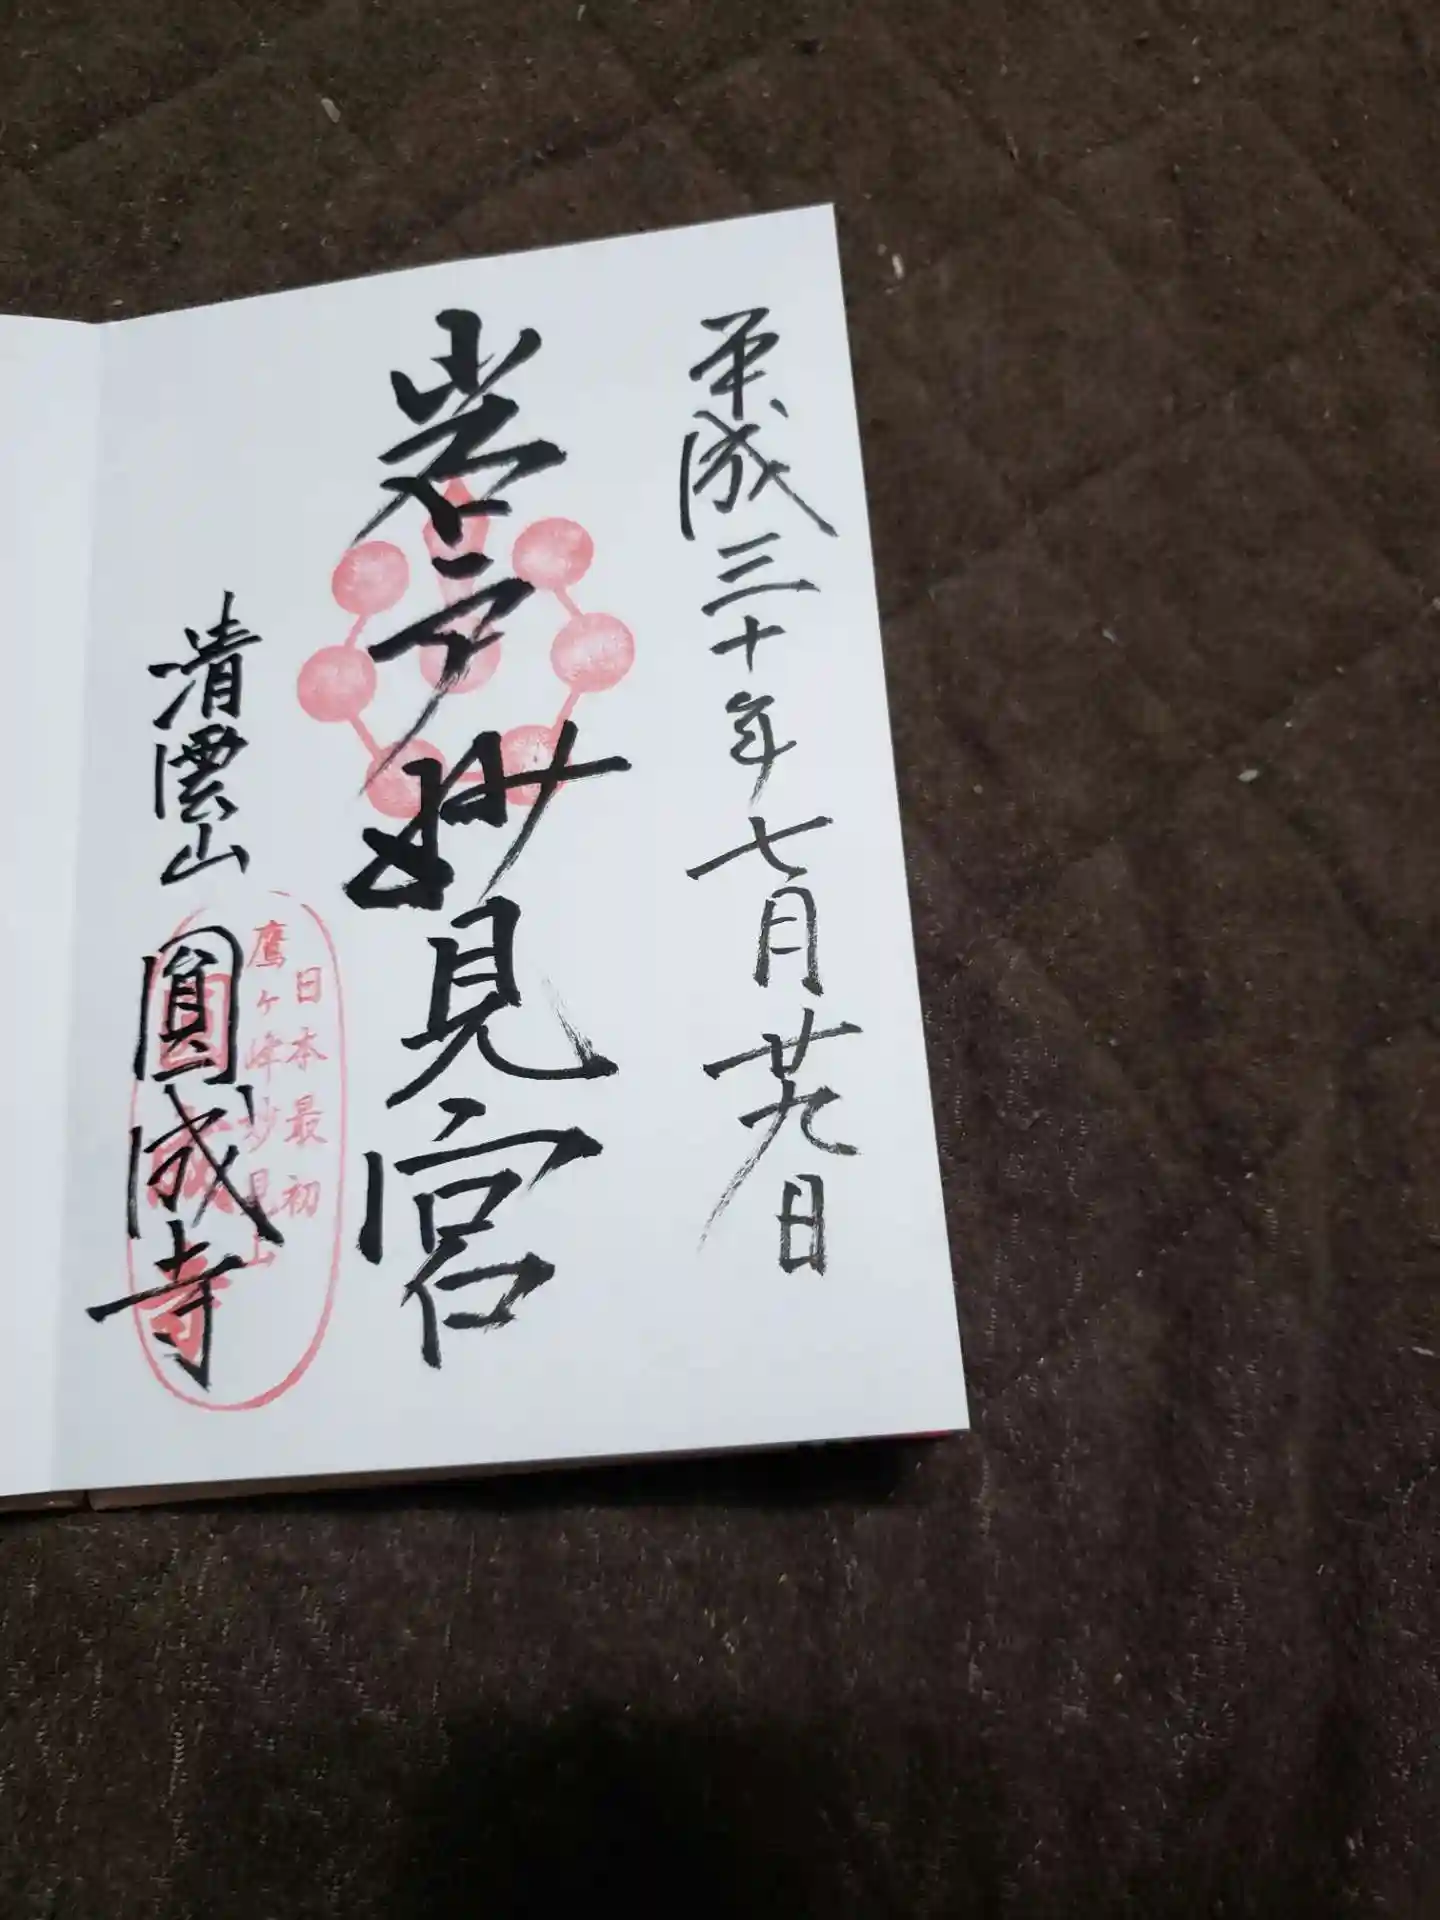 平成三十年七月廿九日
岩戸妙見宮
清雲山 圓成寺
日本最初
鷹ヶ峰妙見山
圓成寺